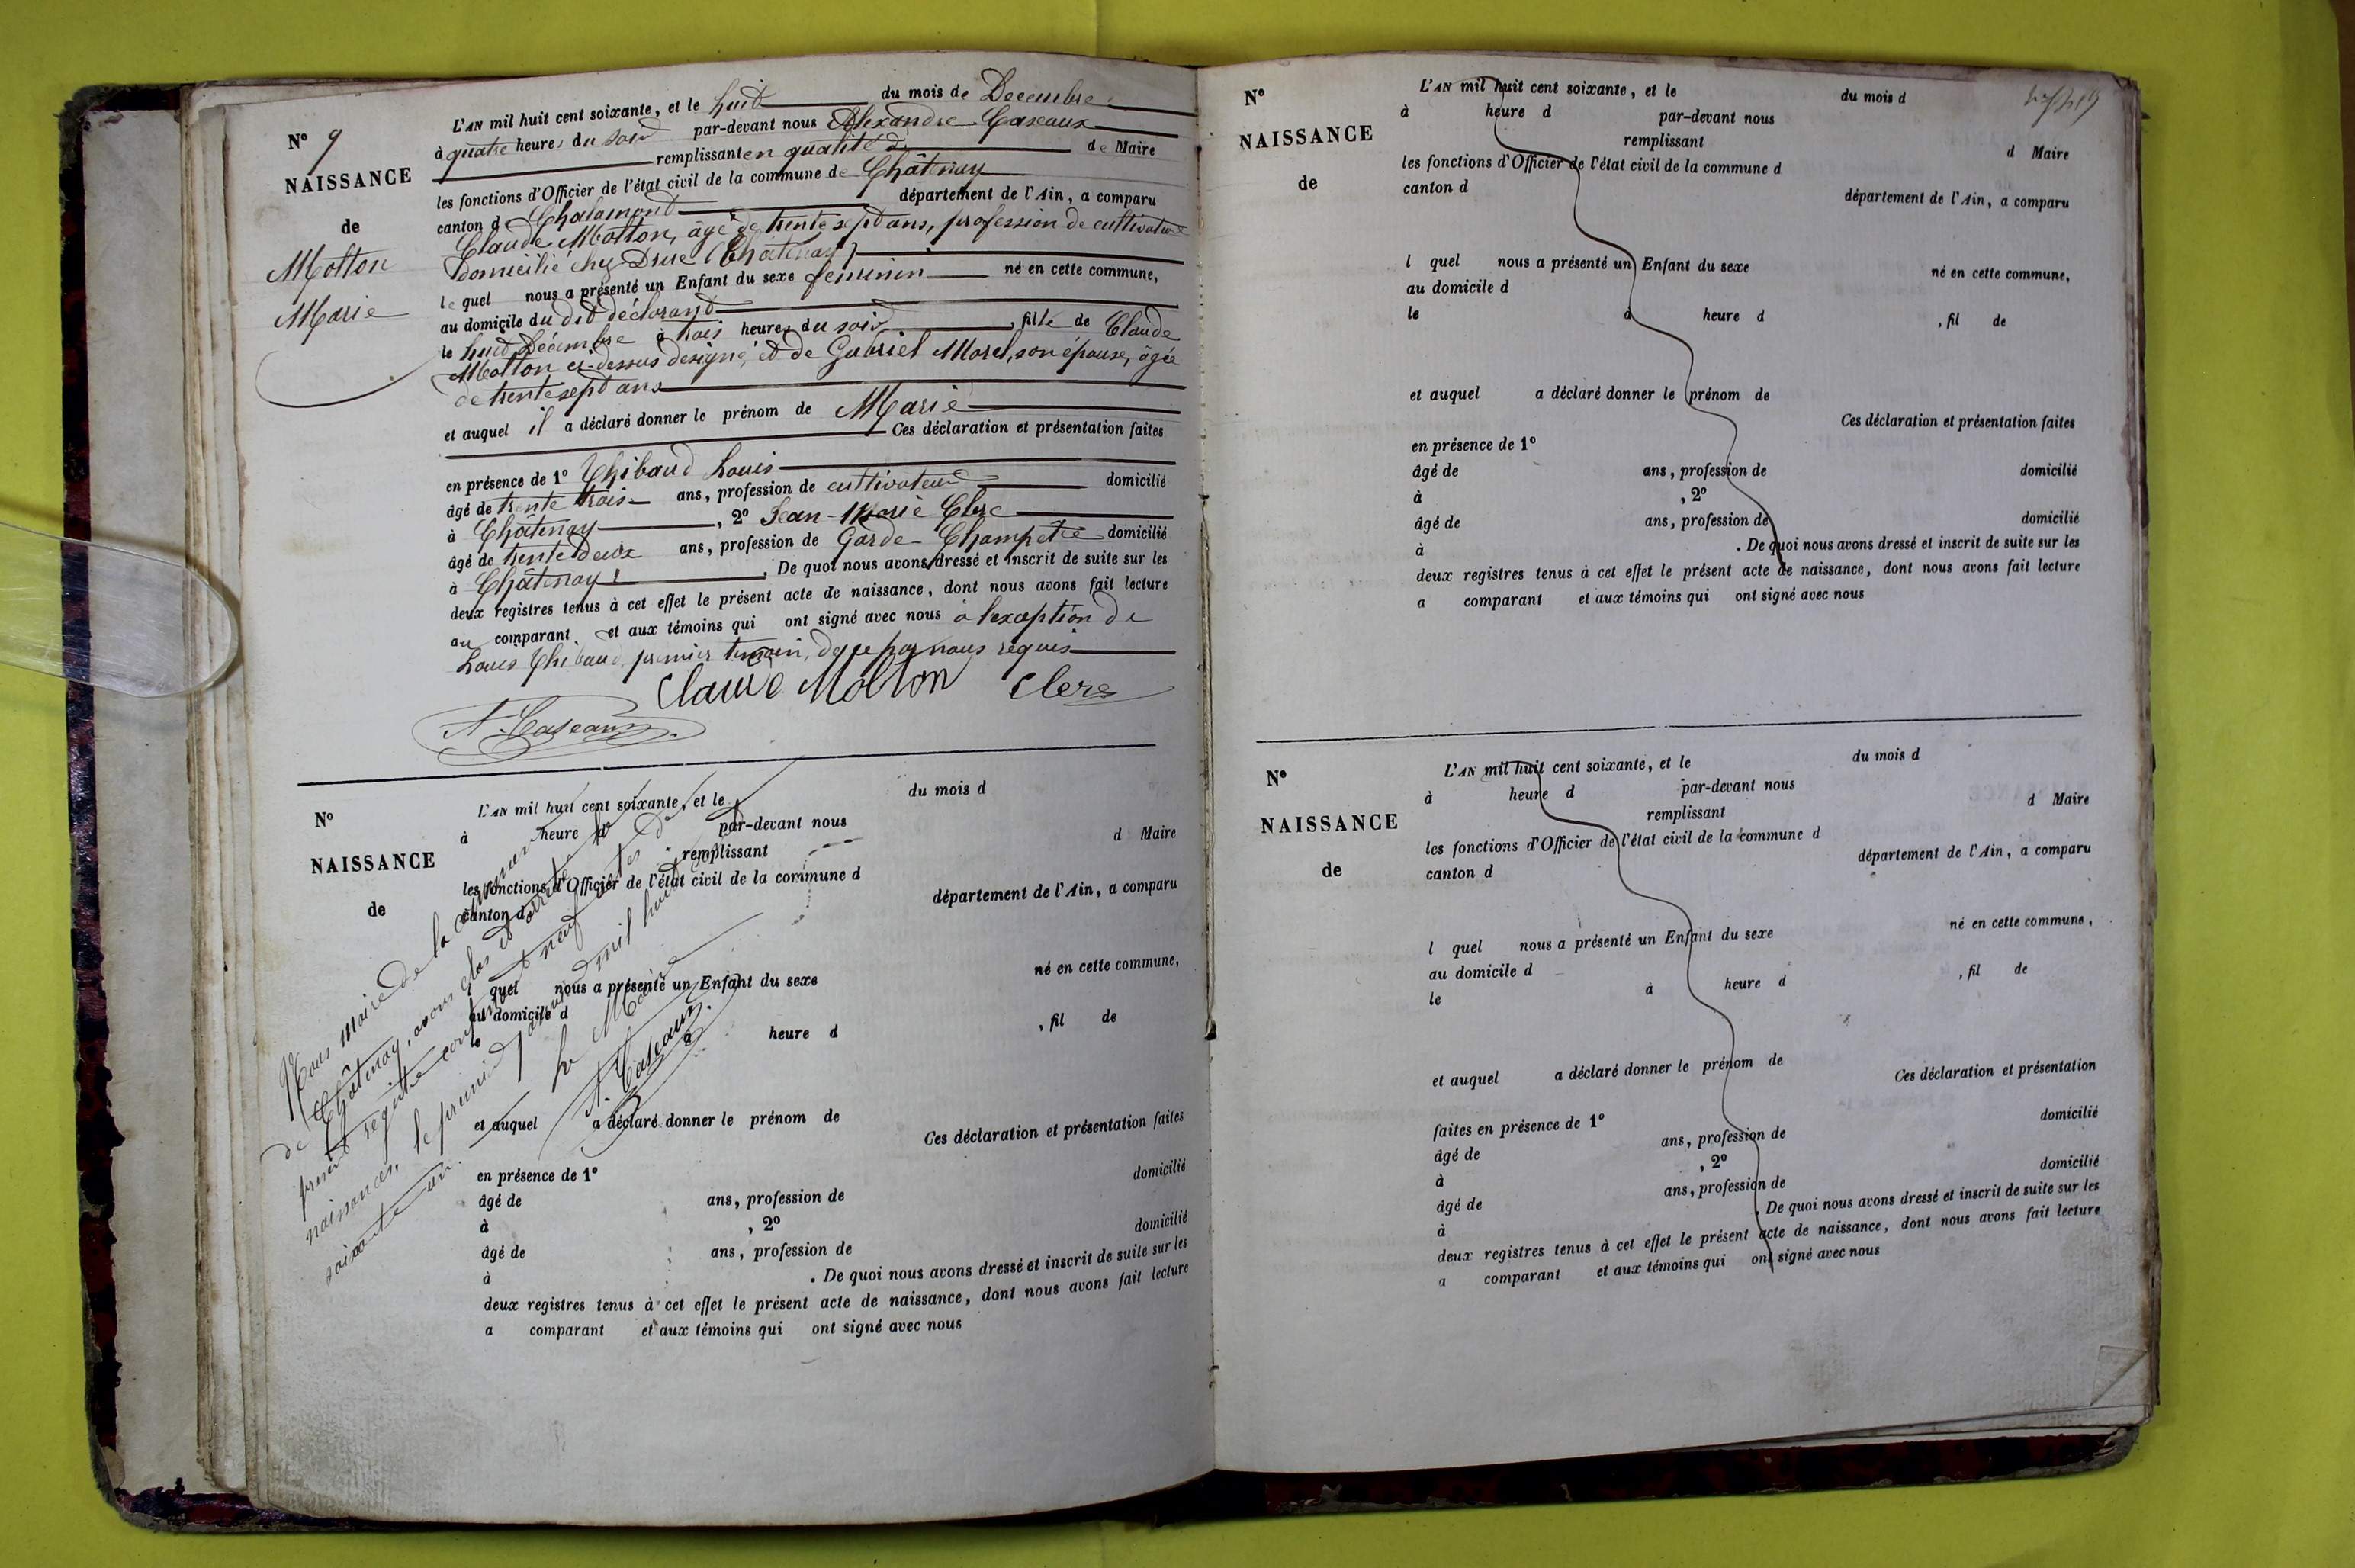 N° 9
NAISSANCE
de
Motton
Marie
L'AN mil huit cent soixante, et le huit du mois de Decembre
à quatre heures du soir par-devant nous Alexandre Caseaux
remplissant en qualité de Maire
les fonctions d'Officier de l'état civil de la commune de Châtenay
canton de Chalamont département de l'Ain, a comparu
Claude Motton, âgé de trente sept ans, profession de cultivateur
domicilié chez Druc (Châtenay)
le quel nous a présenté un Enfant du sexe feminin né en cette commune,
au domicile du dit déclarant
le huit Décembre à trois heures du soir, fille de Claude
Motton ci-dessus designé, et de Gabriel Morel, son épouse, âgée
de trente sept ans
et auquel il a déclaré donner le prénom de Marie
Ces déclaration et présentation faites
en présence de 1° Thibaud Louis
âgé de trente trois ans, profession de cultivateur domicilié
à Châtenay, 2° Jean-Marie Clerc
âgé de trente deux ans, profession de Garde-Champetre domicilié
à Châtenay. De quoi nous avons dressé et inscrit de suite sur les
deux registres tenus à cet effet le présent acte de naissance, dont nous avons fait lecture
au comparant et aux témoins qui ont signé avec nous à l'exception de
Louis Thibaud, premier temoin, de ce par nous requis
Claude Motton Clerc
A. Caseaux
N°
NAISSANCE
de
L'AN mil huit cent soixante, et le du mois d
à heure d par-devant nous
remplissant d Maire
les fonctions d'Officier de l'état civil de la commune d
canton d département de l'Ain, a comparu
l quel nous a présenté un Enfant du sexe né en cette commune,
au domicile d
le à heure d , fil de
et auquel a déclaré donner le prénom de
Ces déclaration et présentation faites
en présence de 1°
âgé de ans, profession de domicilié
à , 2°
âgé de ans, profession de domicilié
à . De quoi nous avons dressé et inscrit de suite sur les
deux registres tenus à cet effet le présent acte de naissance, dont nous avons fait lecture
a comparant et aux témoins qui ont signé avec nous
Nous Maire de la commune
de Châtenay, avons clos et arrêté le
présent registre contenant neuf actes de
naissances, le premier janvier mil huit cent
soixante un.
Le Maire
A. Caseaux
N°
NAISSANCE
de
L'AN mil huit cent soixante, et le du mois d
à heure d par-devant nous
remplissant d Maire
les fonctions d'Officier de l'état civil de la commune d
canton d département de l'Ain, a comparu
l quel nous a présenté un Enfant du sexe né en cette commune,
au domicile d
le à heure d , fil de
et auquel a déclaré donner le prénom de
Ces déclaration et présentation faites
en présence de 1°
âgé de ans, profession de domicilié
à , 2°
âgé de ans, profession de domicilié
à . De quoi nous avons dressé et inscrit de suite sur les
deux registres tenus à cet effet le présent acte de naissance, dont nous avons fait lecture
a comparant et aux témoins qui ont signé avec nous
N°
NAISSANCE
de
L'AN mil huit cent soixante, et le du mois d
à heure d par-devant nous
remplissant d Maire
les fonctions d'Officier de l'état civil de la commune d
canton d département de l'Ain, a comparu
l quel nous a présenté un Enfant du sexe né en cette commune,
au domicile d
le à heure d , fil de
et auquel a déclaré donner le prénom de
Ces déclaration et présentation
faites en présence de 1°
âgé de ans, profession de domicilié
à , 2°
âgé de ans, profession de domicilié
à . De quoi nous avons dressé et inscrit de suite sur les
deux registres tenus à cet effet le présent acte de naissance, dont nous avons fait lecture
a comparant et aux témoins qui ont signé avec nous